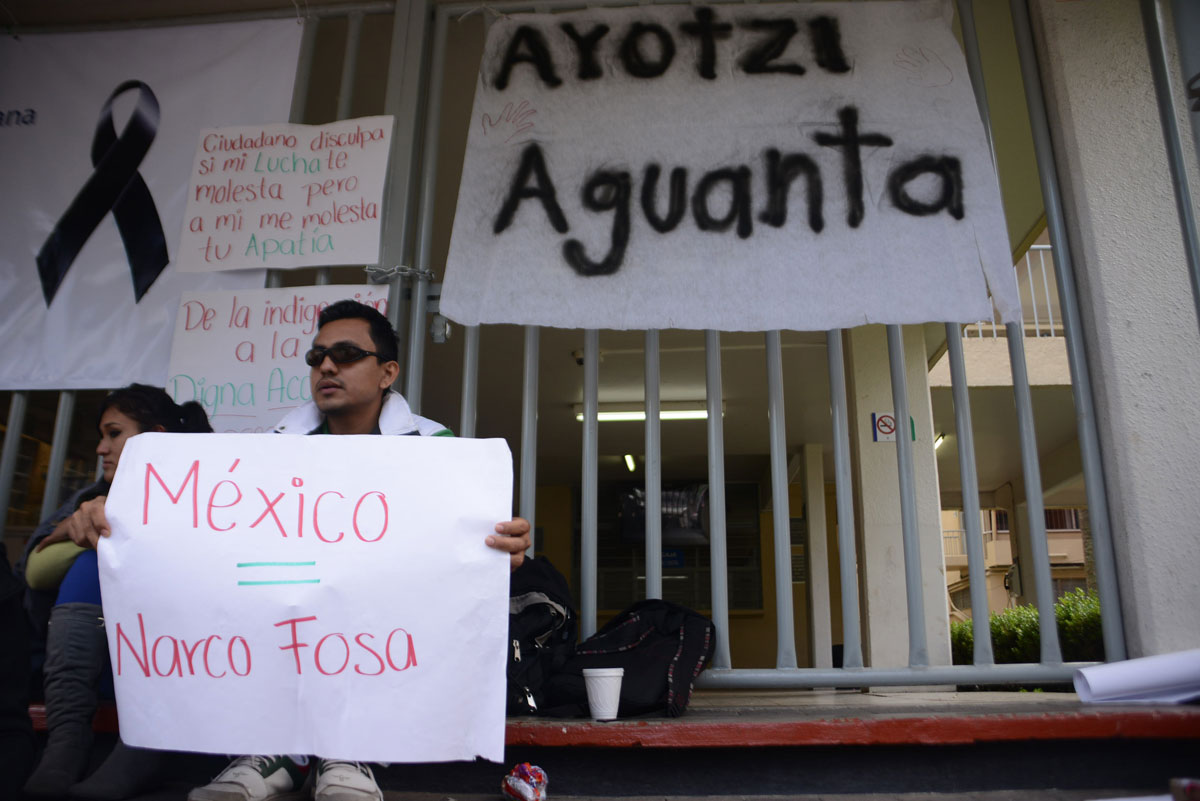 ana
Ciudadano disculpa
si mi Lucha te
molesta pero
a mi me molesta
tu Apatía
Ayotzi
Aguanta
De la indignación
a la
Digna
México
=
Narco Fosa